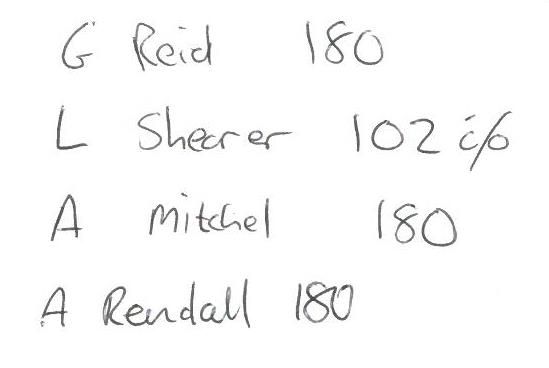 G Reid 180
L Shearer 102 c/o
A Mitchel 180
A Rendall 180